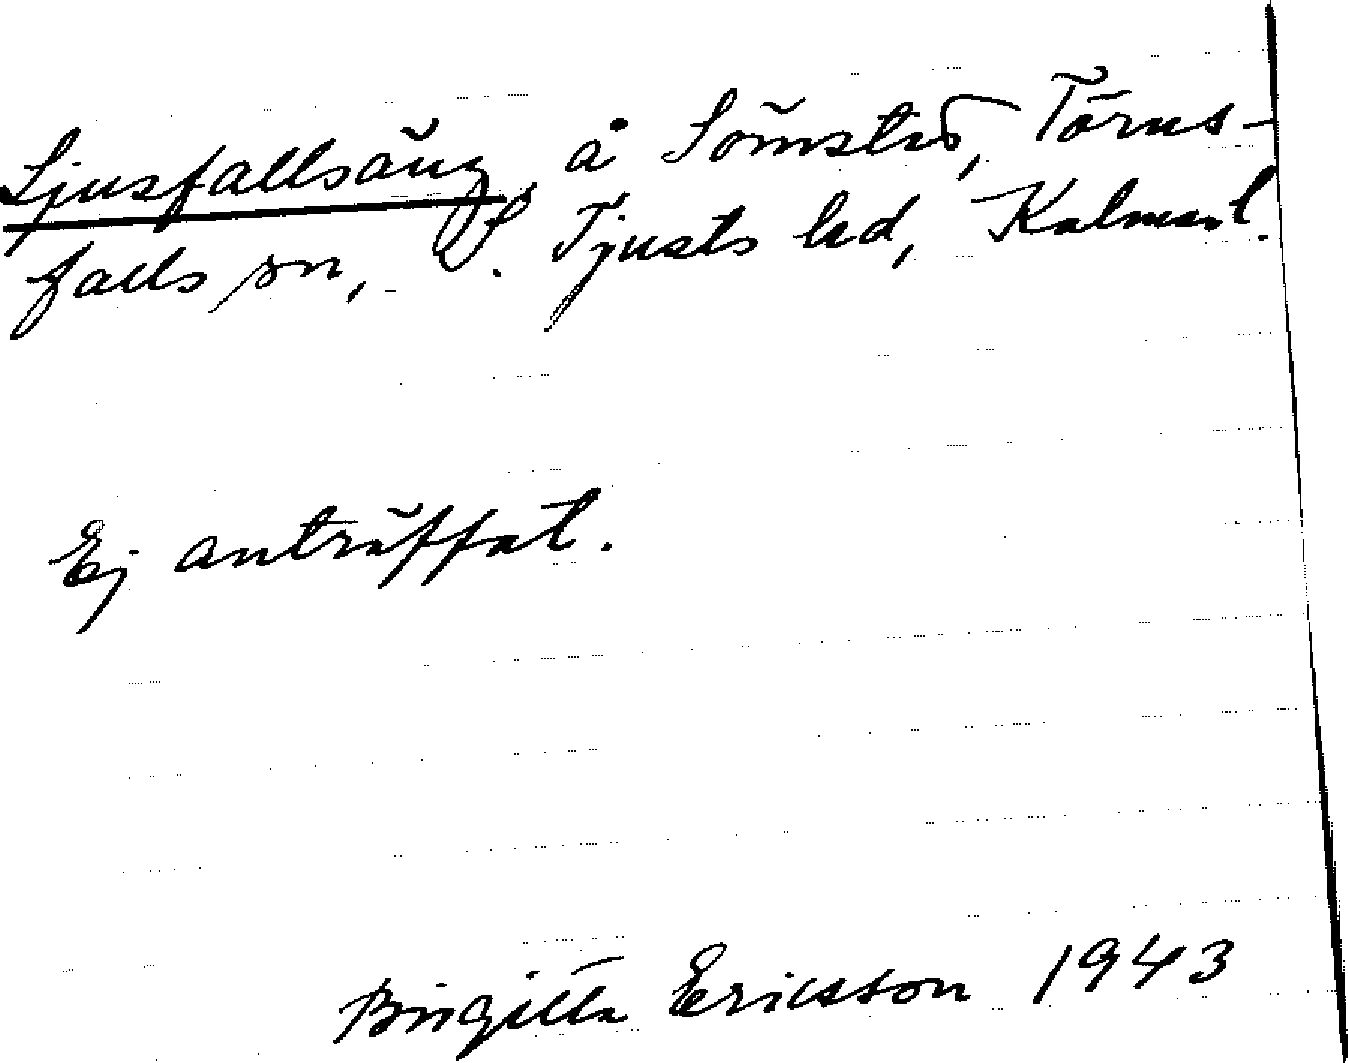 Ljusfallsäng å Sömstad, Törns-
falls sn, S. Tjusts hd, Kalmar l.
Ej anträffat.
Birgitta Ericsson 1943